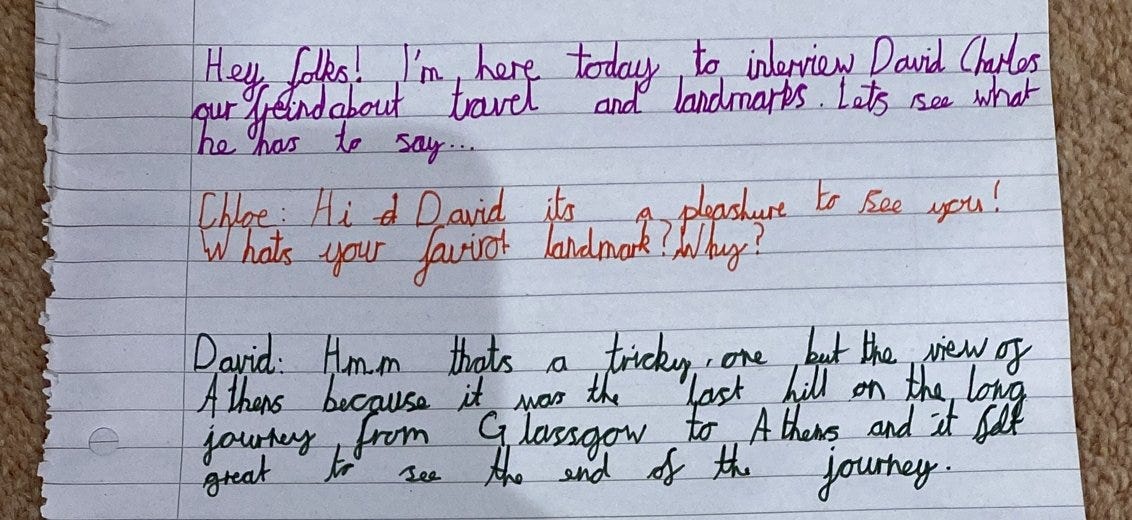 Hey folks! I'm here today to interview David Charles
our freind about travel and landmarks. Lets see what
he has to say...
Chloe: Hi d David its a pleashure to see you!
Whats your favirot landmark? Why?
David: Hmm thats a tricky one but the view of
Athens because it was the last hill on the long
journey from Glassgow to Athens and it felt
great to see the end of the journey.